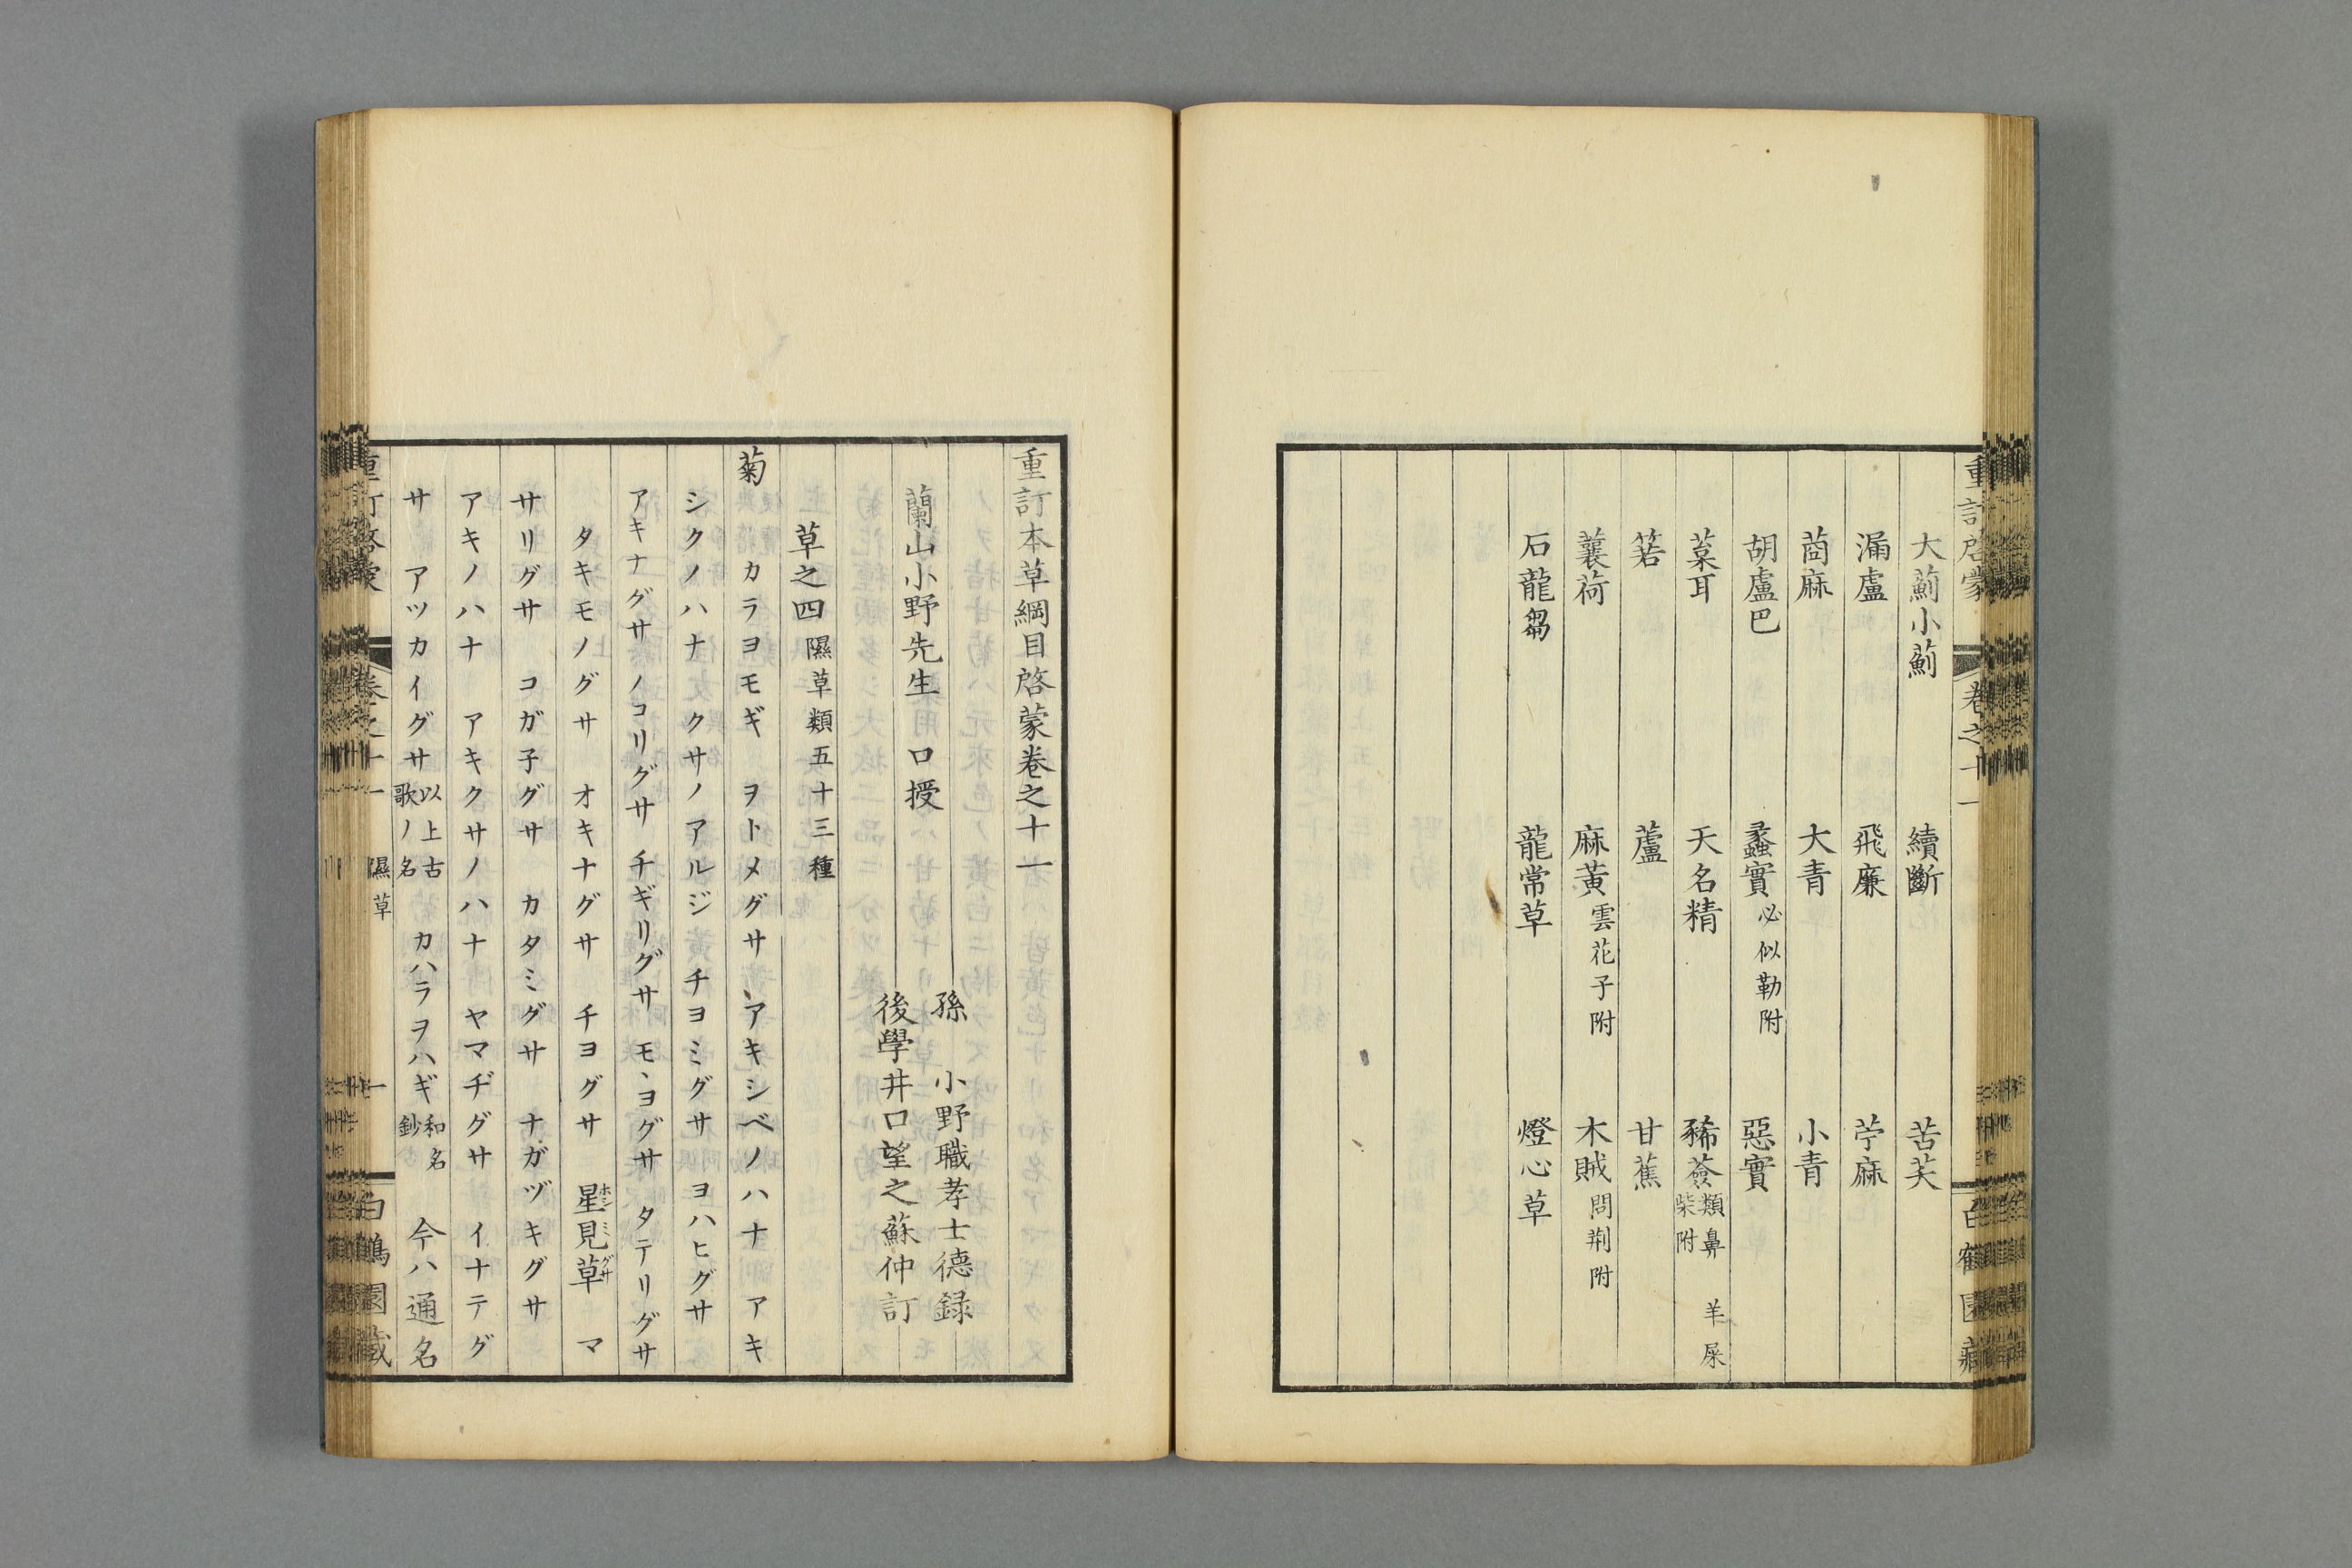 大薊小薊　續斷　苦芙
漏盧　飛廉　苧麻
莔麻　大青　小青
胡盧巴　蠡實 必似勒附　惡實
葈耳　天名精　豨薟 類鼻　羊屎 柴附
箬　蘆　甘蕉
蘘荷　麻黃 雲花子附　木賊 問荆附
石龍芻　龍常草　燈心草
重訂本草綱目啓蒙卷之十一
蘭山小野先生　口授
孫　小野職孝士德錄
後學井口望之蘇仲訂
草之四 隰草類五十三種
菊　カラヨモギ　ヲトメグサ　アキシベノハナ　アキ
シクノハナ　クサノアルジ　チヨミグサ　ヨハヒグサ
アキナグサ　ノコリグサ　チギリグサ　モヽヨグサ　タテリグサ
タキモノグサ　オキナグサ　チヨグサ　星見草 ホシミグサ　マ
サリグサ　コガ子グサ　カタミグサ　ナガヅキグサ
アキノハナ　アキクサノハナ　ヤマヂグサ　イナテグ
サ　アツカイグサ 以上古歌ノ名　カハラヲハギ 和名鈔　今ハ通名
重訂啓蒙　卷之十一　隰草　一　白鶴園藏